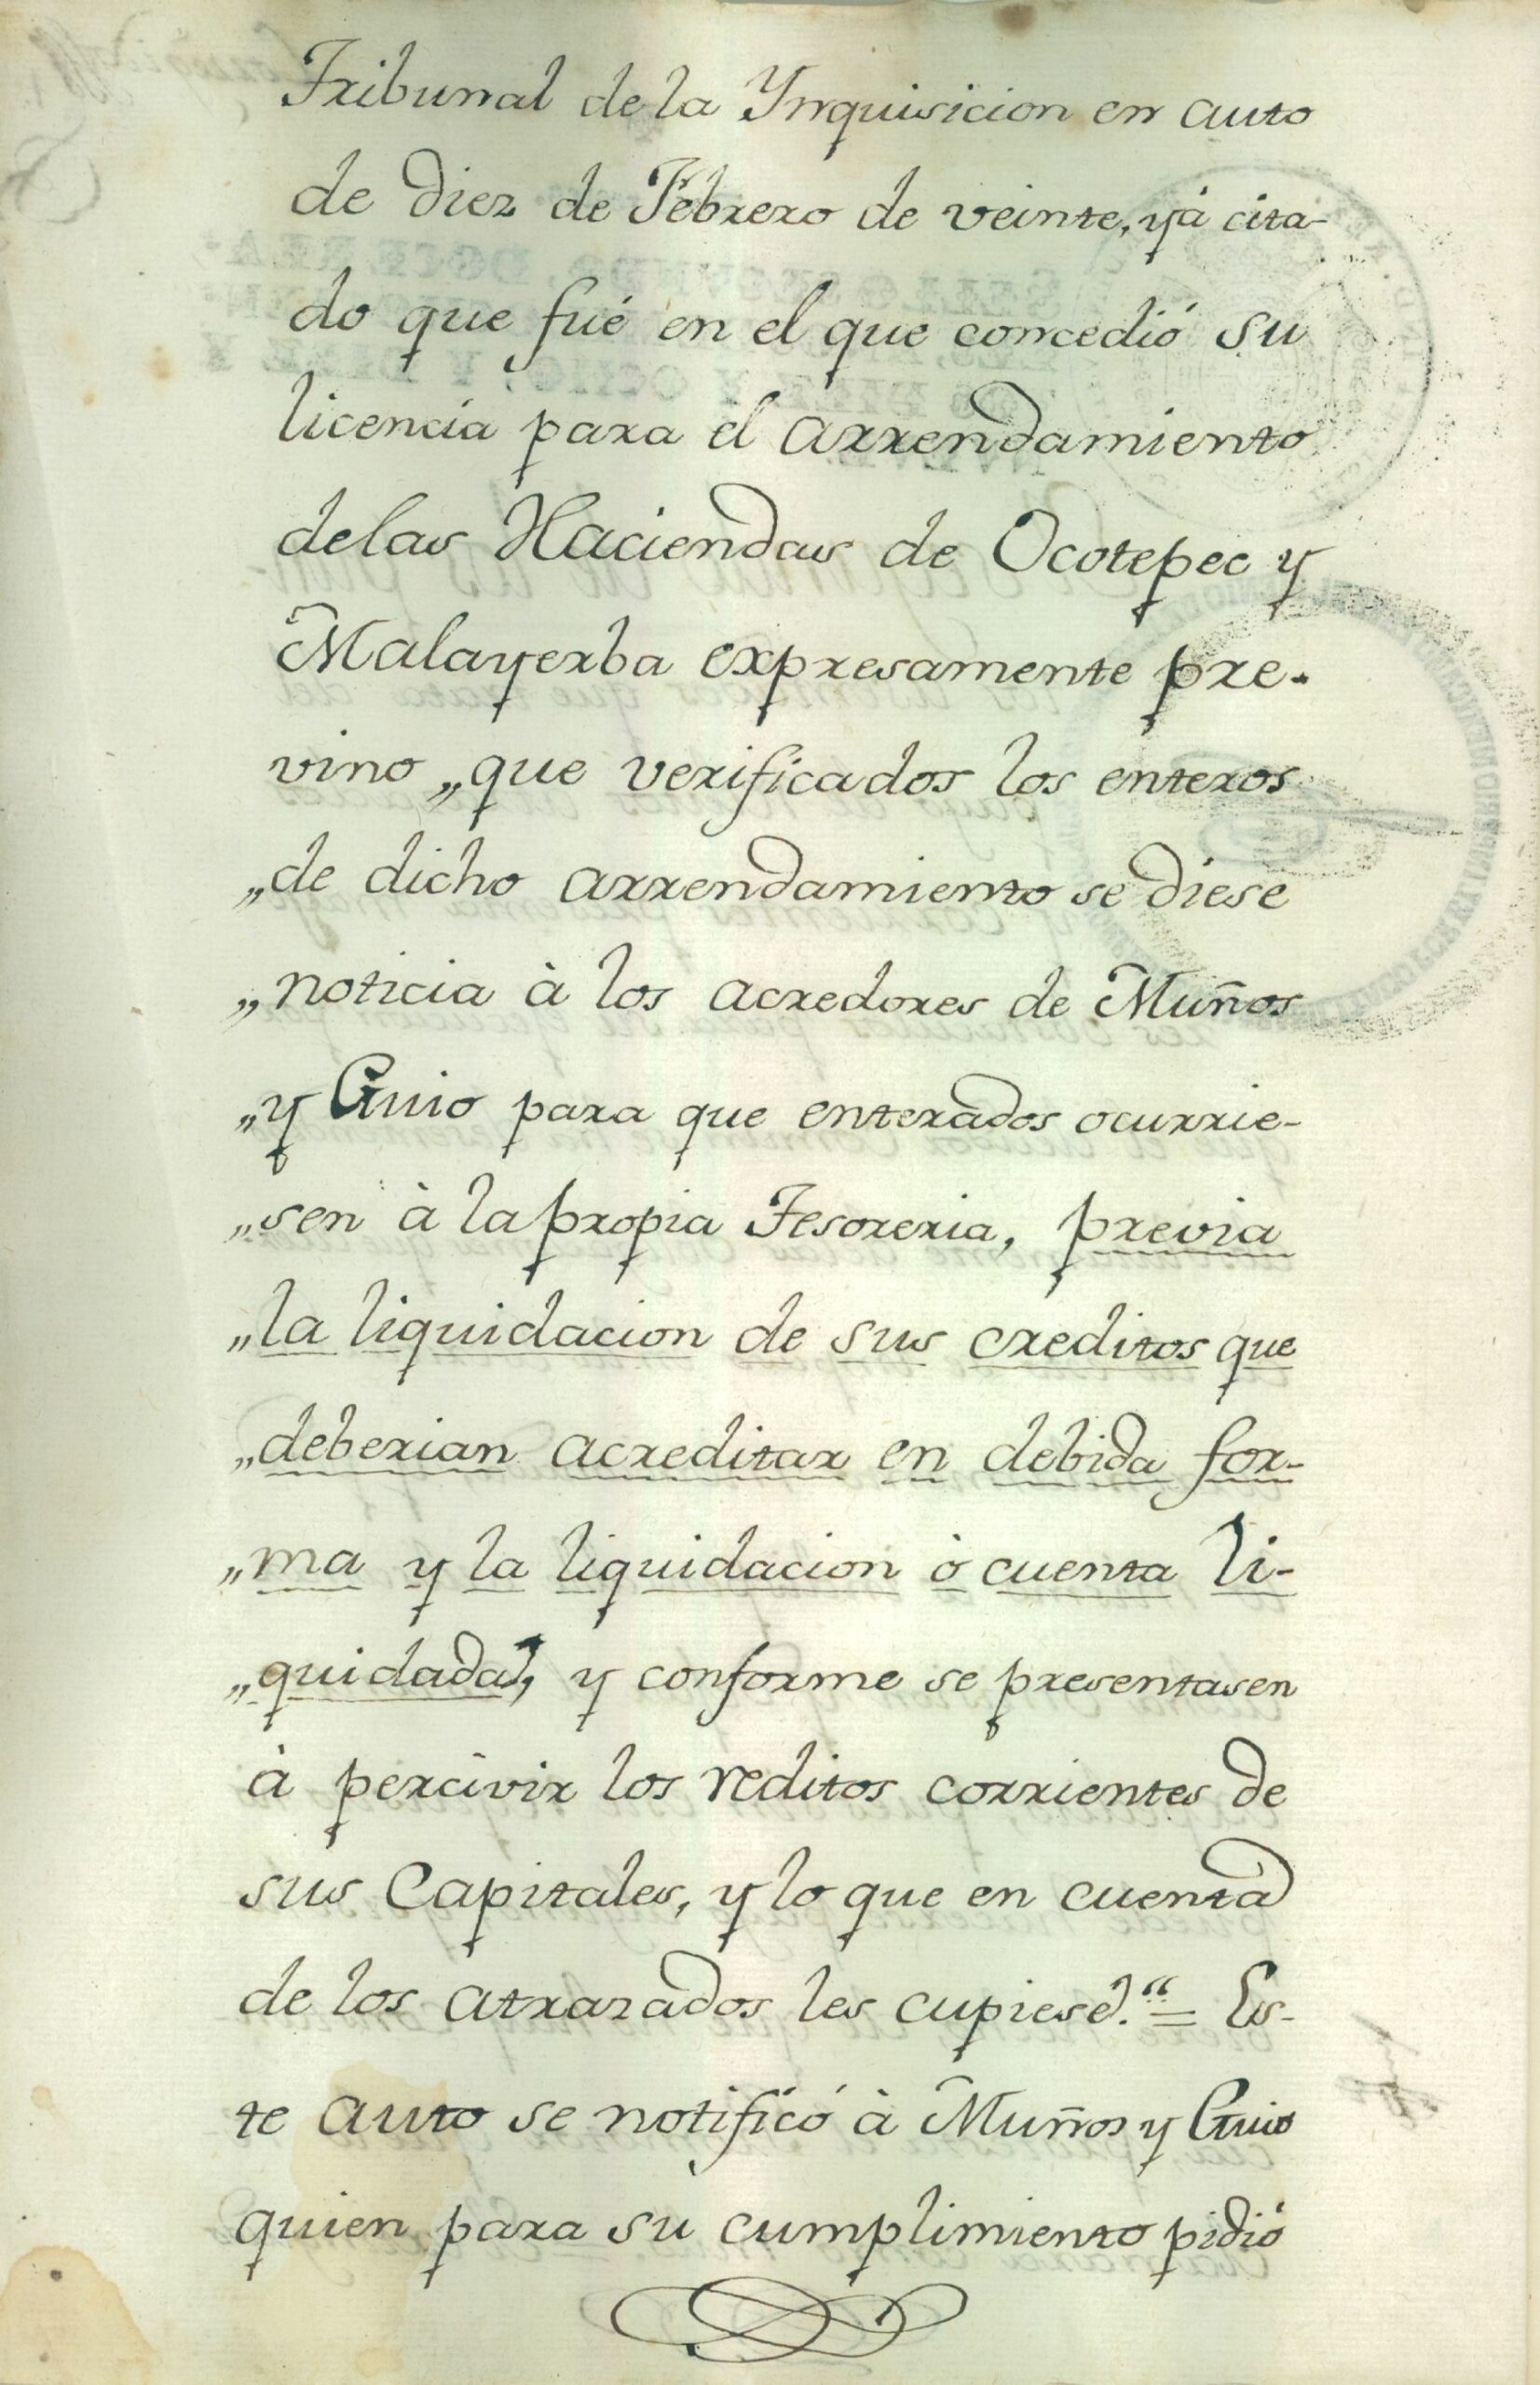 Tribunal de la Ynquisicion en auto
de diez de Febrero de veinte, yá cita-
do que fué en el que concedió su
licencia para el arrendamiento
delas Haciendas de Ocotepec y
Malayerba expresamente pre-
vino „que verificados los enteros
„de dicho arrendamiento se diese
„noticia à los acredores de Muños
„y Guio para que enterados ocurrie-
„sen à la propia Tesoreria, previa
„la liquidacion de sus creditos que
„deberian acreditar en debida for-
„ma y la liquidacion ò cuenta li-
„quidada, y conforme se presentasen
à percivir los reditos corrientes de
sus Capitales, y lo que en cuenta
de los atrazados les cupiese.“= Es-
te auto se notificó à Muños y Guio
quien para su cumplimiento pidió